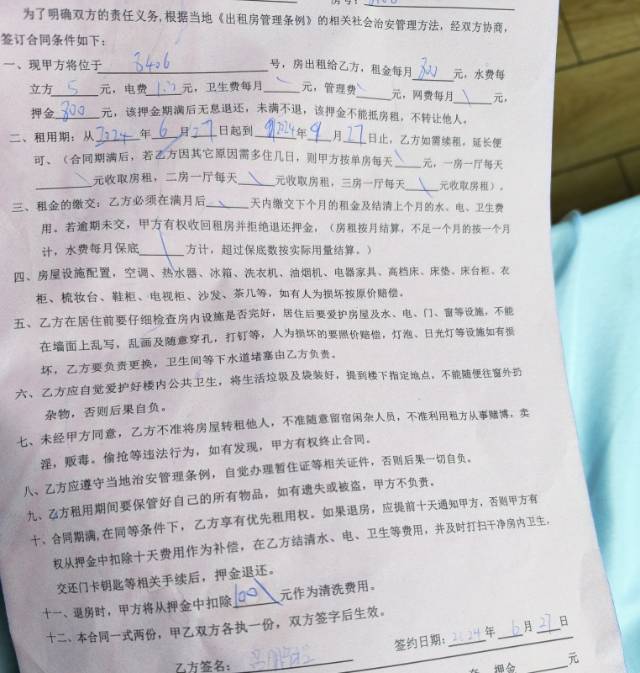 为了明确双方的责任义务,根据当地《出租房管理条例》的相关社会治安管理方法,经双方协商,
签订合同条件如下:
一、现甲方将位于 8406 号,房出租给乙方,租金每月 800 元,水费每
立方 5 元,电费 元,卫生费每月 元,管理费 元,网费每月 元,
押金 800 元,该押金期满后无息退还,未满不退,该押金不能抵房租,不转让他人。
二、租用期:从 2024 年 6 月 27 日起到 2024 年 9 月 27 日止,乙方如需续租,延长便
可、(合同期满后,若乙方因其它原因需多住几日,则甲方按单房每天 元,一房一厅每天
元收取房租,二房一厅每天 元收取房租,三房一厅每天 元收取房租)。
三、租金的缴交:乙方必须在满月后 天内缴交下个月的租金及结清上个月的水、电、卫生费
用。若逾期未交,甲方有权收回租房并拒绝退还押金,(房租按月结算,不足一个月的按一个月
计,水费每月保底 方计,超过保底数按实际用量结算。)
四、房屋设施配置,空调、热水器、冰箱、洗衣机、油烟机、电器家具、高档床、床垫、床台柜、衣
柜、梳妆台、鞋柜、电视柜、沙发、茶几等,如有人为损坏按原价赔偿。
五、乙方在居住前要仔细检查房内设施是否完好,居住后要爱护房屋及水、电、门、窗等设施,不能
在墙面上乱写,乱画及随意穿孔,打钉等,人为损坏的要照价赔偿,灯泡、日光灯等设施如有损
坏,乙方要负责更换,卫生间等下水道堵塞由乙方负责。
六、乙方应自觉爱护好楼内公共卫生,将生活垃圾及袋装好,提到楼下指定地点,不能随便往窗外扔
杂物,否则后果自负。
七、未经甲方同意,乙方不准将房屋转租他人,不准随意留宿闲杂人员,不准利用租方从事赌博、卖
淫,贩毒。偷抢等违法行为,如有发现,甲方有权终止合同。
八、乙方应遵守当地治安管理条例,自觉办理暂住证等相关证件,否则后果一切自负。
九、乙方租用期间要保管好自己的所有物品,如有遗失或被盗,甲方不负责。
十、合同期满,在同等条件下,乙方享有优先租用权。如果退房,应提前十天通知甲方,否则甲方有
权从押金中扣除十天费用作为补偿,在乙方结清水、电、卫生等费用,并及时打扫干净房内卫生,
交还门卡钥匙等相关手续后,押金退还。
十一、退房时,甲方将从押金中扣除 100 元作为清洗费用。
十二、本合同一式两份,甲乙双方各执一份,双方签字后生效。
签约日期: 2024 年 6 月 27 日
乙方签名:
押金 元